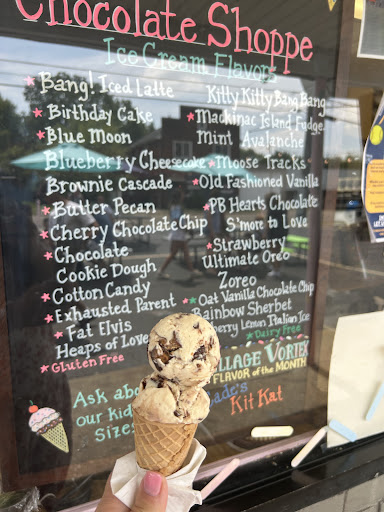 Chocolate Shoppe
Ice Cream Flavors
* Bang! Iced Latte
* Birthday Cake
* Blue Moon
Blueberry Cheesecake
Brownie Cascade
* Butter Pecan
* Cherry Chocolate Chip
* Chocolate
Cookie Dough
* Cotton Candy
* Exhausted Parent
* Fat Elvis
Heaps of Love
* Gluten Free
Kitty Kitty Bang Bang
* Mackinac Island Fudge
Mint Avalanche
* Moose Tracks
* Old Fashioned Vanilla
* PB Hearts Chocolate
S'more to Love
* Strawberry
Ultimate Oreo
Zoreo
* * Oat Vanilla Chocolate Chip
Rainbow Sherbet
Lemon Italian Ice
* Dairy Free
Ask
our kid
Sizes
VORTEX
FLAVOR of the MONTH
Kit Kat